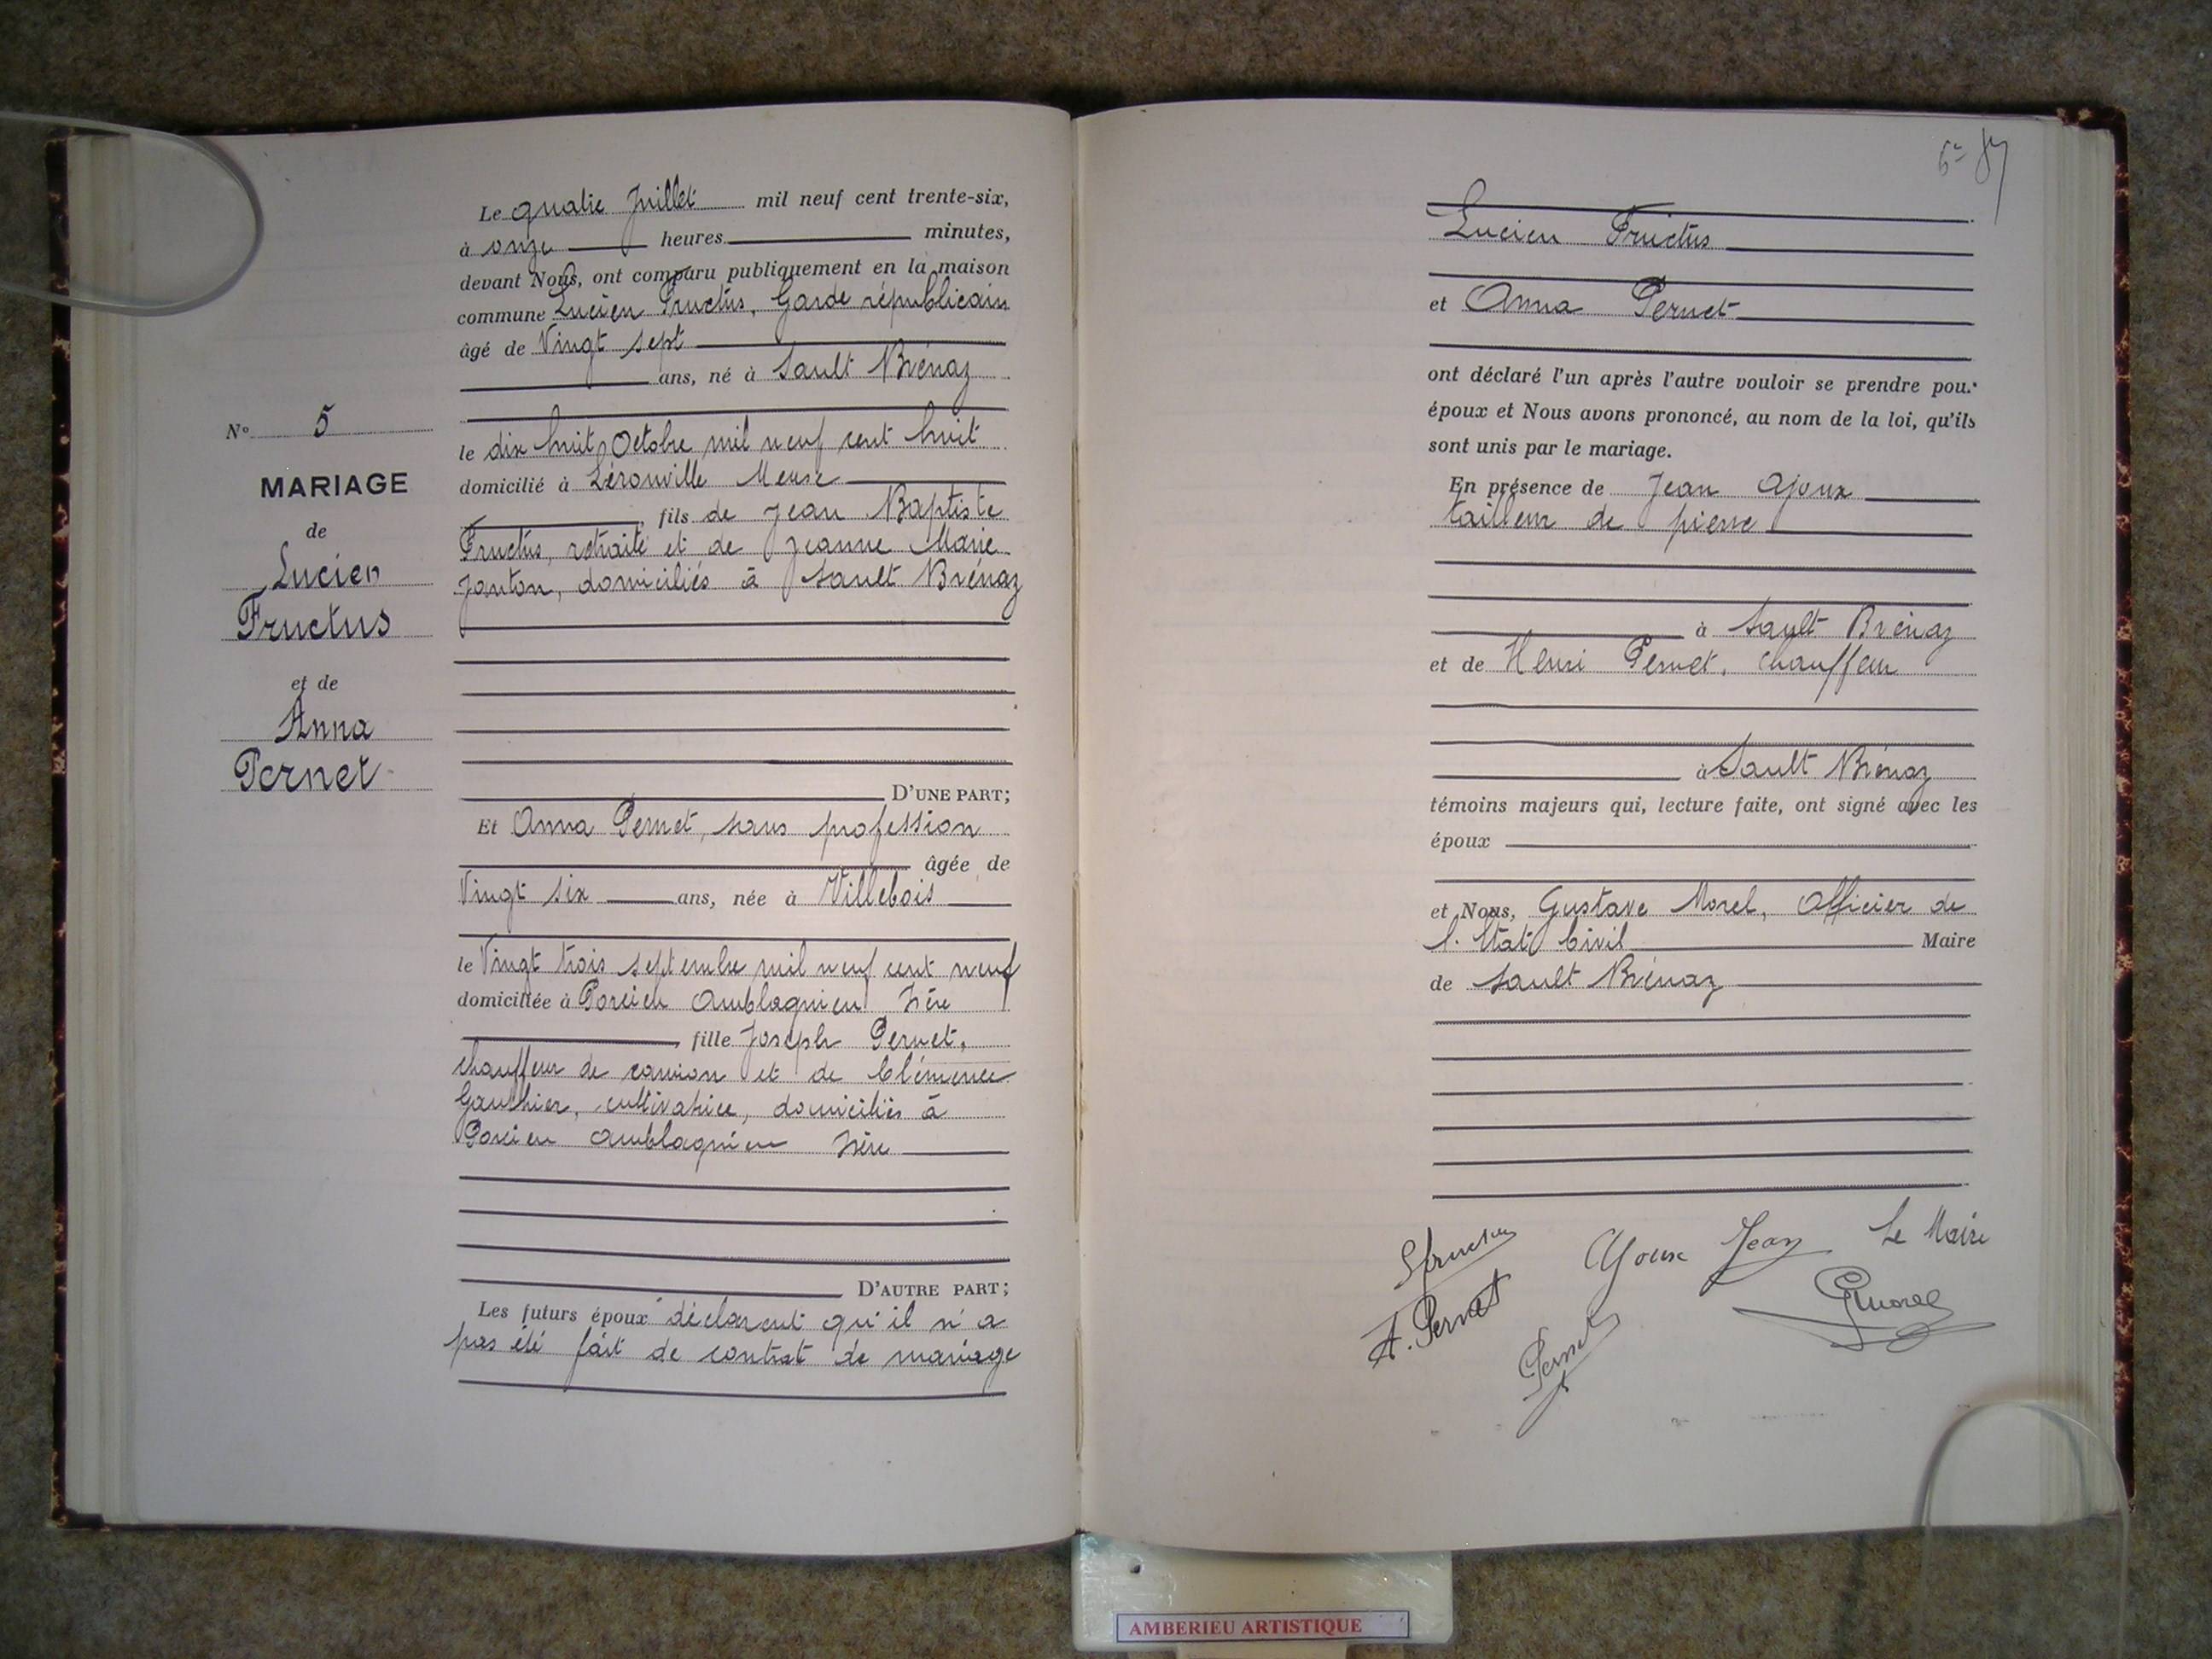 Le quatre Juillet mil neuf cent trente-six,
à onze heures minutes,
devant Nous, ont comparu publiquement en la maison
commune Lucien Fructus, Garde républicain
âgé de Vingt sept
ans, né à Sault Brénaz
le dix huit Octobre mil neuf cent huit
domicilié à Lérouville Meuse
, fils de Jean Baptiste
Fructus, retraité et de Jeanne Marie
Janton, domiciliés à Sault Brénaz
D'UNE PART;
Et Anna Pernet, sans profession
âgée de
Vingt six ans, née à Villebois
le Vingt trois septembre mil neuf cent neuf
domiciliée à Porcieu Amblagnieu Isère
, fille Joseph Pernet,
chauffeur de camion et de Clémence
Gauthier, cultivatrice, domiciliés à
Porcieu Amblagnieu Isère
D'AUTRE PART;
Les futurs époux déclarent qu'il n'a
pas été fait de contrat de mariage
N° 5
MARIAGE
de
Lucien
Fructus
et de
Anna
Pernet
Lucien Fructus
et Anna Pernet
ont déclaré l'un après l'autre vouloir se prendre pour
époux et Nous avons prononcé, au nom de la loi, qu'ils
sont unis par le mariage.
En présence de Jean Ajoux
tailleur de pierre
à Sault Brénaz
et de Henri Pernet, chauffeur
à Sault Brénaz
témoins majeurs qui, lecture faite, ont signé avec les
époux
et Nous, Gustave Morel, Officier de
l'Etat Civil Maire
de Sault Brénaz
Fructus
Ajoux Jean
Le Maire
A. Pernet
Pernet
GMorel
AMBERIEU ARTISTIQUE